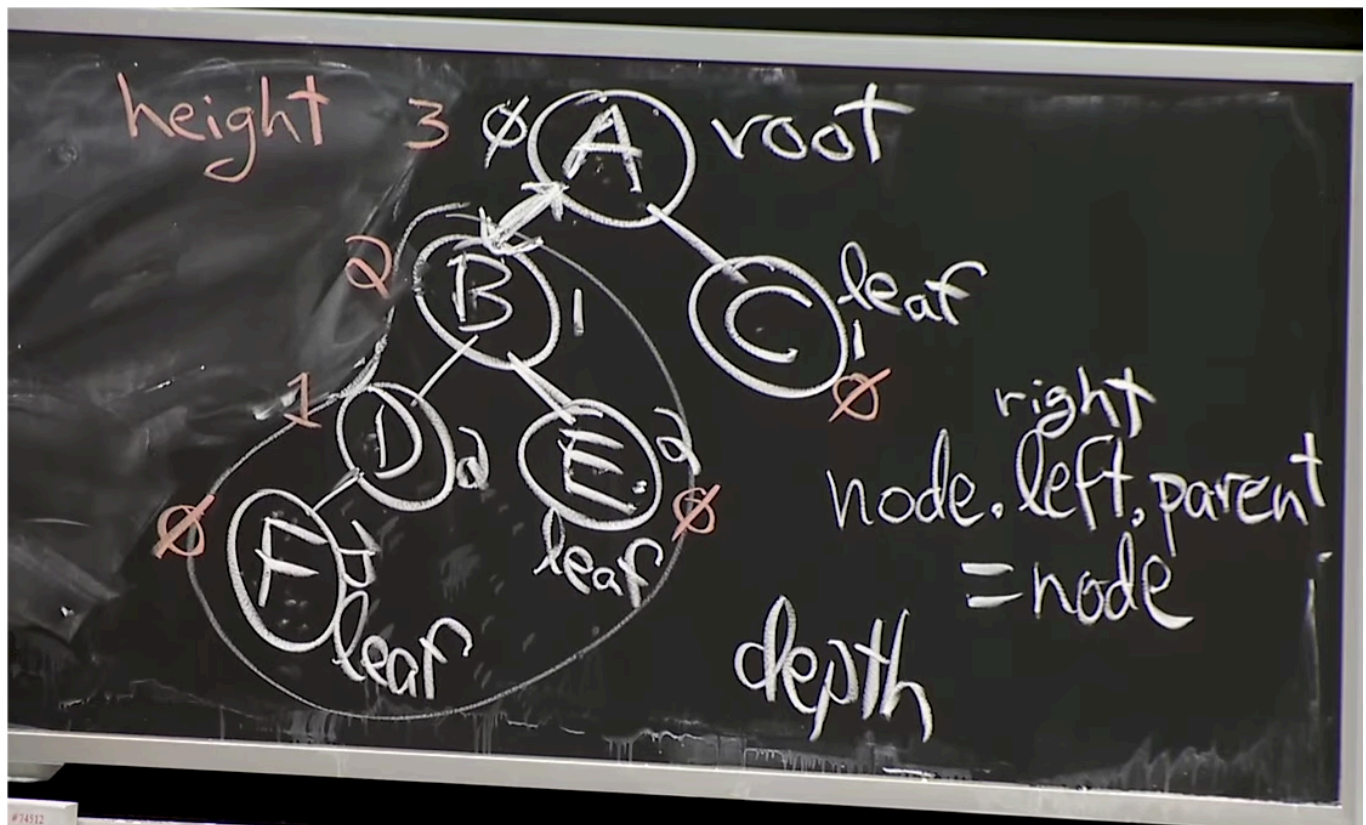 height 3 ∅ A root
2 B 1
C leaf
1
∅
1 D 2
E 2
∅
∅ F 3
leaf
leaf
right
node.left.parent
=node
depth
#74512